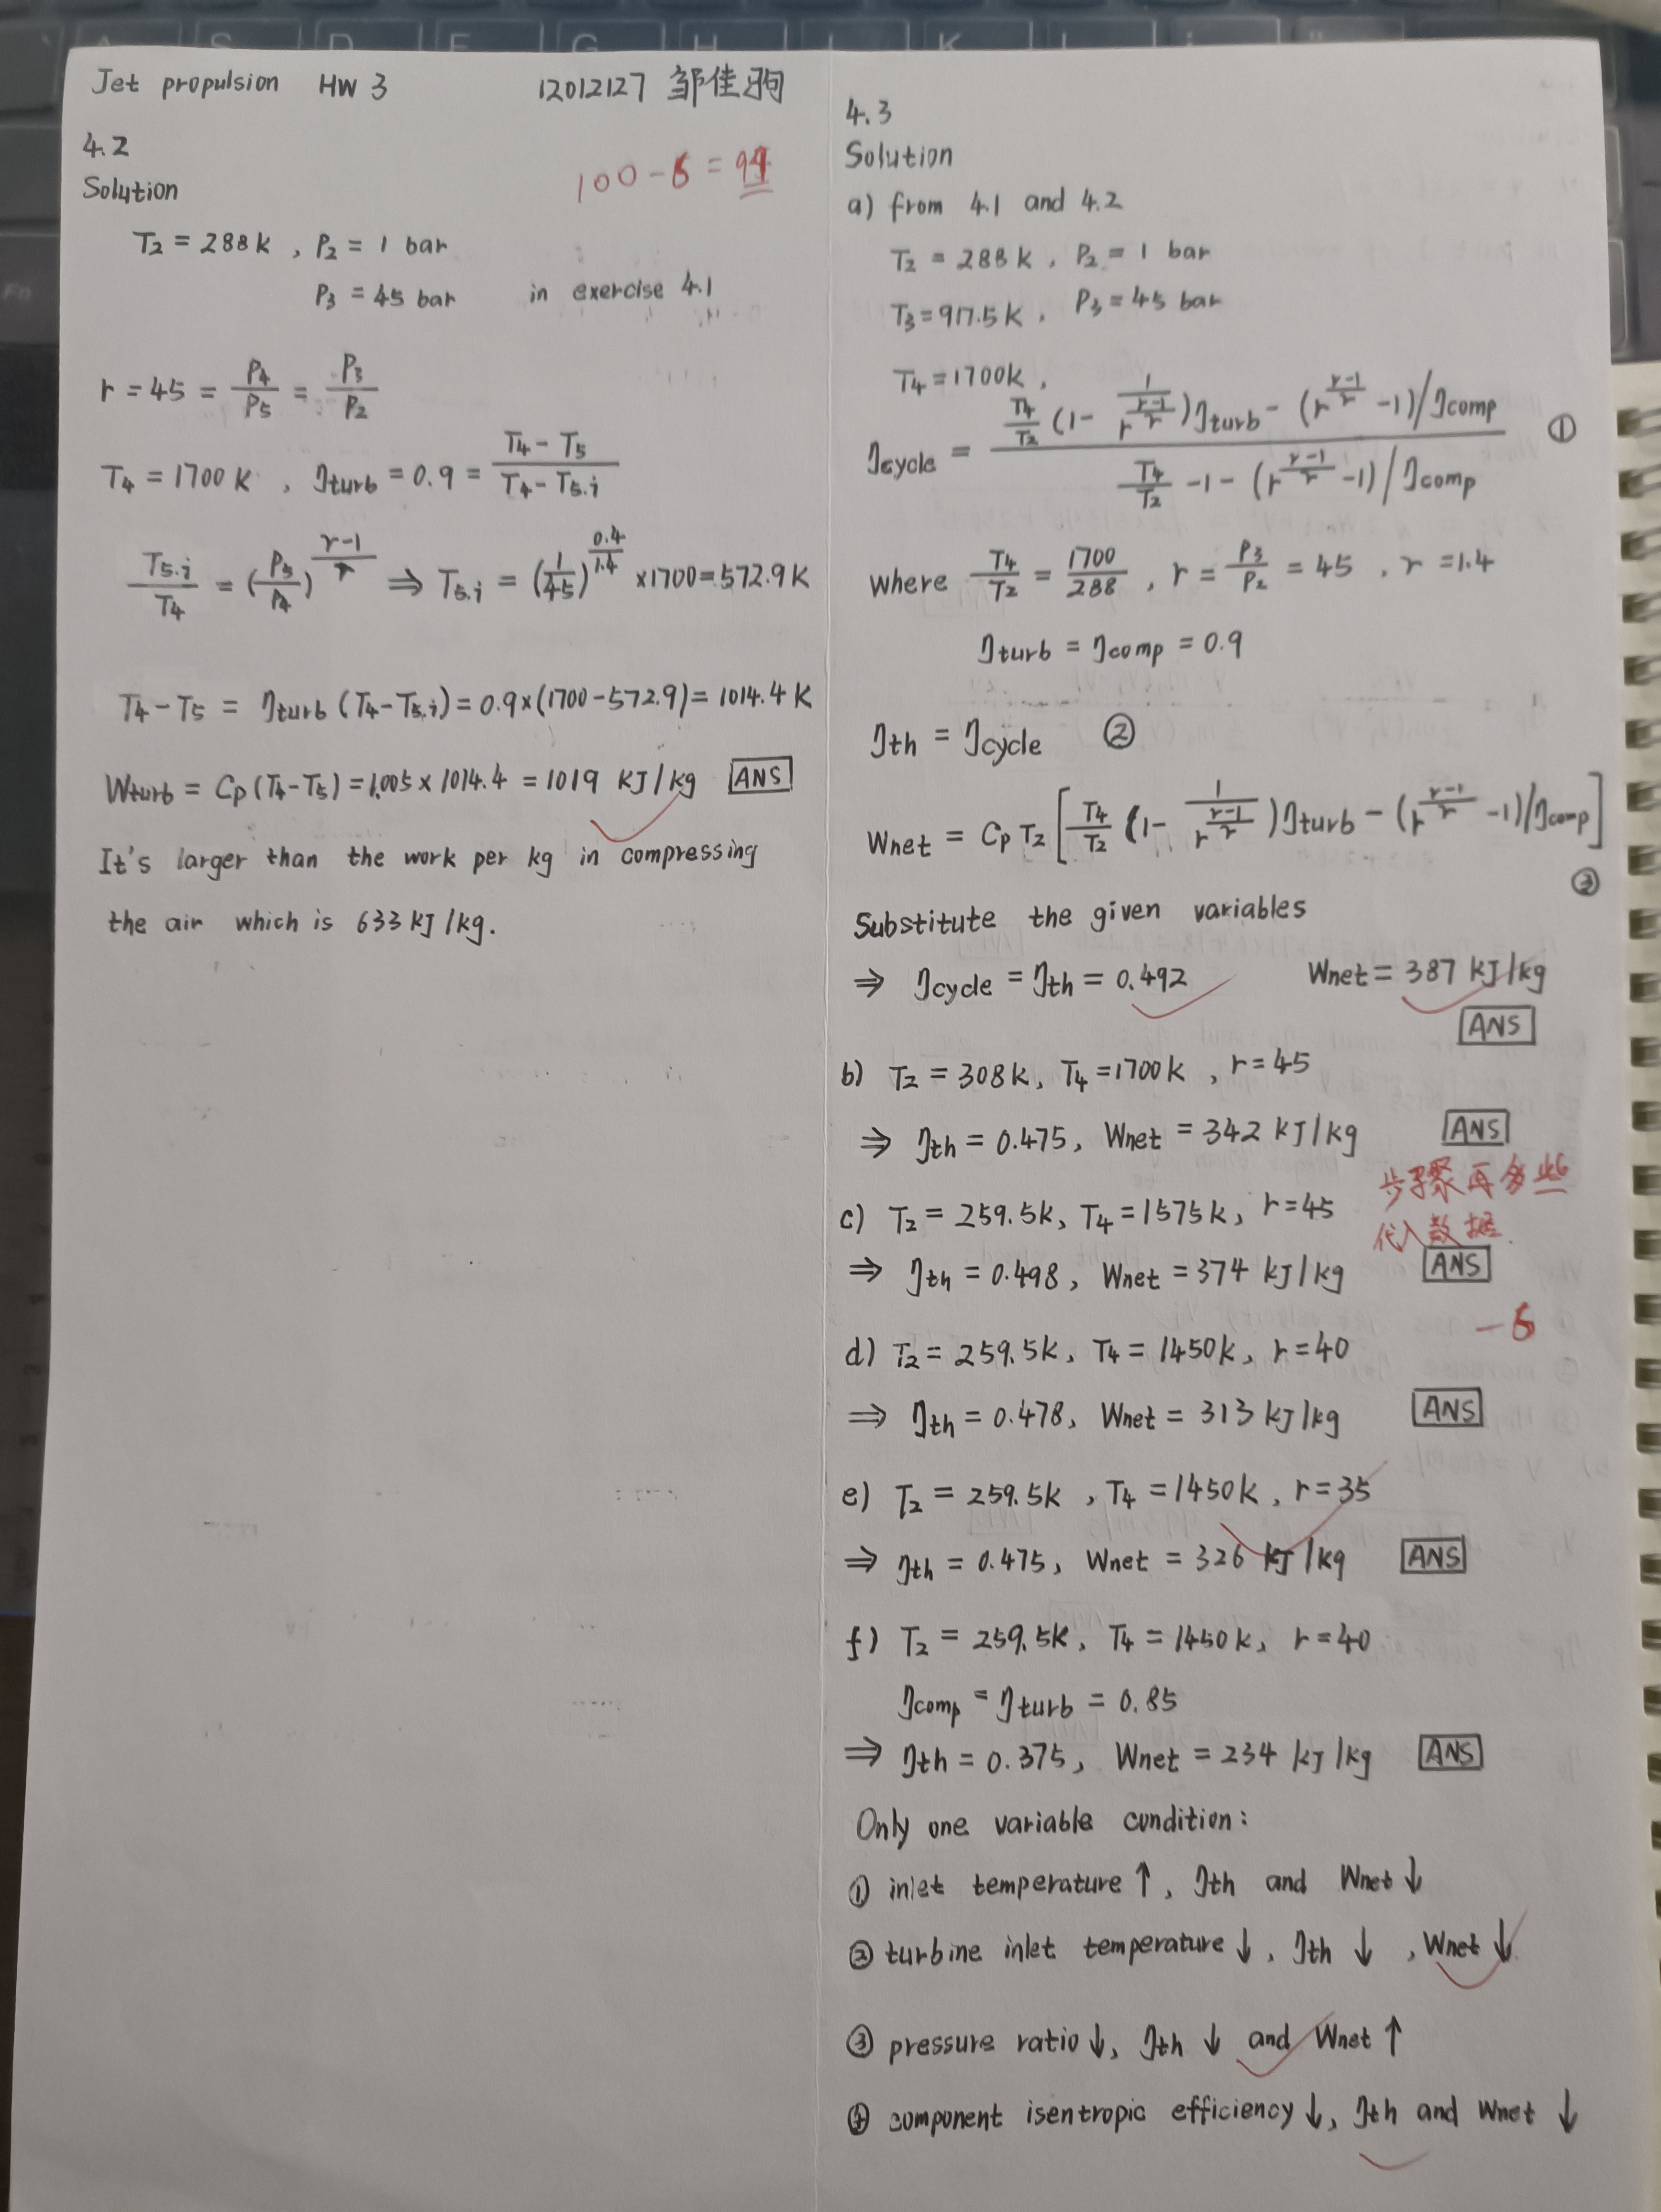 Jet propulsion HW 3 12012127 邹佳驹
100-6=94
4.2
Solution
T₂ = 288 k , P₂ = 1 bar
P₃ = 45 bar in exercise 4.1
r = 45 = P₄/P₅ = P₃/P₂
T₄ = 1700 K , ηturb = 0.9 = (T₄ - T₅)/(T₄ - T₅.i)
T₅.i/T₄ = (P₅/P₄)^((γ-1)/γ) ⇒ T₅.i = (1/45)^(0.4/1.4) × 1700 = 572.9 K
T₄ - T₅ = ηturb (T₄ - T₅.i) = 0.9 × (1700 - 572.9) = 1014.4 K
Wturb = Cp (T₄ - T₅) = 1.005 × 1014.4 = 1019 KJ/kg ANS
It's larger than the work per kg in compressing
the air which is 633 kJ/kg.
4.3
Solution
a) from 4.1 and 4.2
T₂ = 288 k , P₂ = 1 bar
T₃ = 917.5 k , P₃ = 45 bar
T₄ = 1700k ,
ηcycle = [T₄/T₂ (1 - 1/r^((γ-1)/γ)) ηturb - (r^((γ-1)/γ) - 1)/ηcomp] / [T₄/T₂ - 1 - (r^((γ-1)/γ) - 1)/ηcomp] ①
where T₄/T₂ = 1700/288 , r = P₃/P₂ = 45 , γ = 1.4
ηturb = ηcomp = 0.9
ηth = ηcycle ②
Wnet = Cp T₂ [T₄/T₂ (1 - 1/r^((γ-1)/γ)) ηturb - (r^((γ-1)/γ) - 1)/ηcomp]
③
Substitute the given variables
⇒ ηcycle = ηth = 0.492 Wnet = 387 kJ/kg
ANS
b) T₂ = 308k, T₄ = 1700k , r = 45
⇒ ηth = 0.475, Wnet = 342 kJ/kg ANS
步骤再多些
代入数据.
c) T₂ = 259.5k, T₄ = 1575k, r = 45
⇒ ηth = 0.498, Wnet = 374 kJ/kg ANS
-6
d) T₂ = 259.5k, T₄ = 1450k, r = 40
⇒ ηth = 0.478, Wnet = 313 kJ/kg ANS
e) T₂ = 259.5k , T₄ = 1450k, r = 35
⇒ ηth = 0.475, Wnet = 326 kJ/kg ANS
f) T₂ = 259.5k, T₄ = 1450k, r = 40
ηcomp = ηturb = 0.85
⇒ ηth = 0.375, Wnet = 234 kJ/kg ANS
Only one variable condition:
① inlet temperature ↑, ηth and Wnet ↓
② turbine inlet temperature ↓, ηth ↓ , Wnet ↓.
③ pressure ratio ↓, ηth ↓ and Wnet ↑
④ component isentropic efficiency ↓, ηth and Wnet ↓